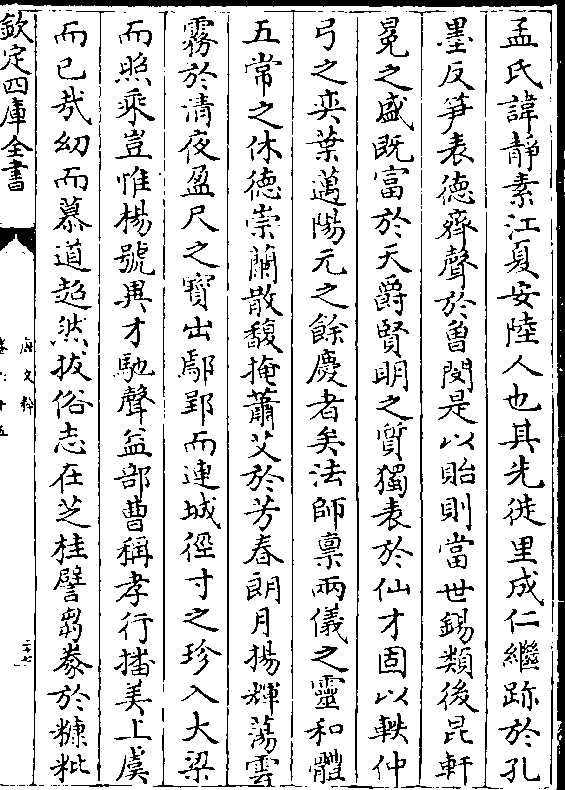 孟氏諱靜素江夏安陸人也其先徙里成仁繼跡於孔
墨反笋表德齊聲於曽閔是以貽則當世錫類後昆軒
冕之盛既富於天爵賢明之質獨表於仙才固以軼仲
弓之奕葉邁陽元之餘慶者矣法師禀兩儀之靈和體
五常之休德崇蘭散馥掩蕭艾於芳春朗月揚輝蕩雲
霧於清夜盈尺之寶出鄢郢而連城徑寸之珍入大梁
而照乘豈惟楊號異才馳聲益部曹稱孝行播美上虞
而已㢤幼而慕道超然拔俗志在芝桂譬芻豢於糠粃
欽定四庫全書
唐文粹
二十七